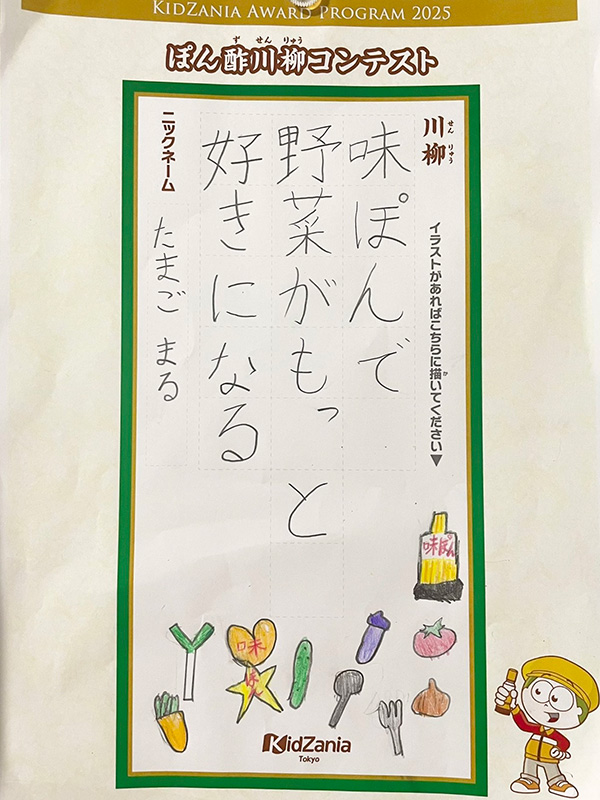 KIDZANIA AWARD PROGRAM 2025
ぽん酢川柳コンテスト
ず せん りゅう
川柳
せん りゅう
イラストがあればこちらに描いてください▼
か
味ぽんで
野菜がもっと
好きになる
ニックネーム
たまご まる
味ぽん
味
ぽん
KidZania
Tokyo